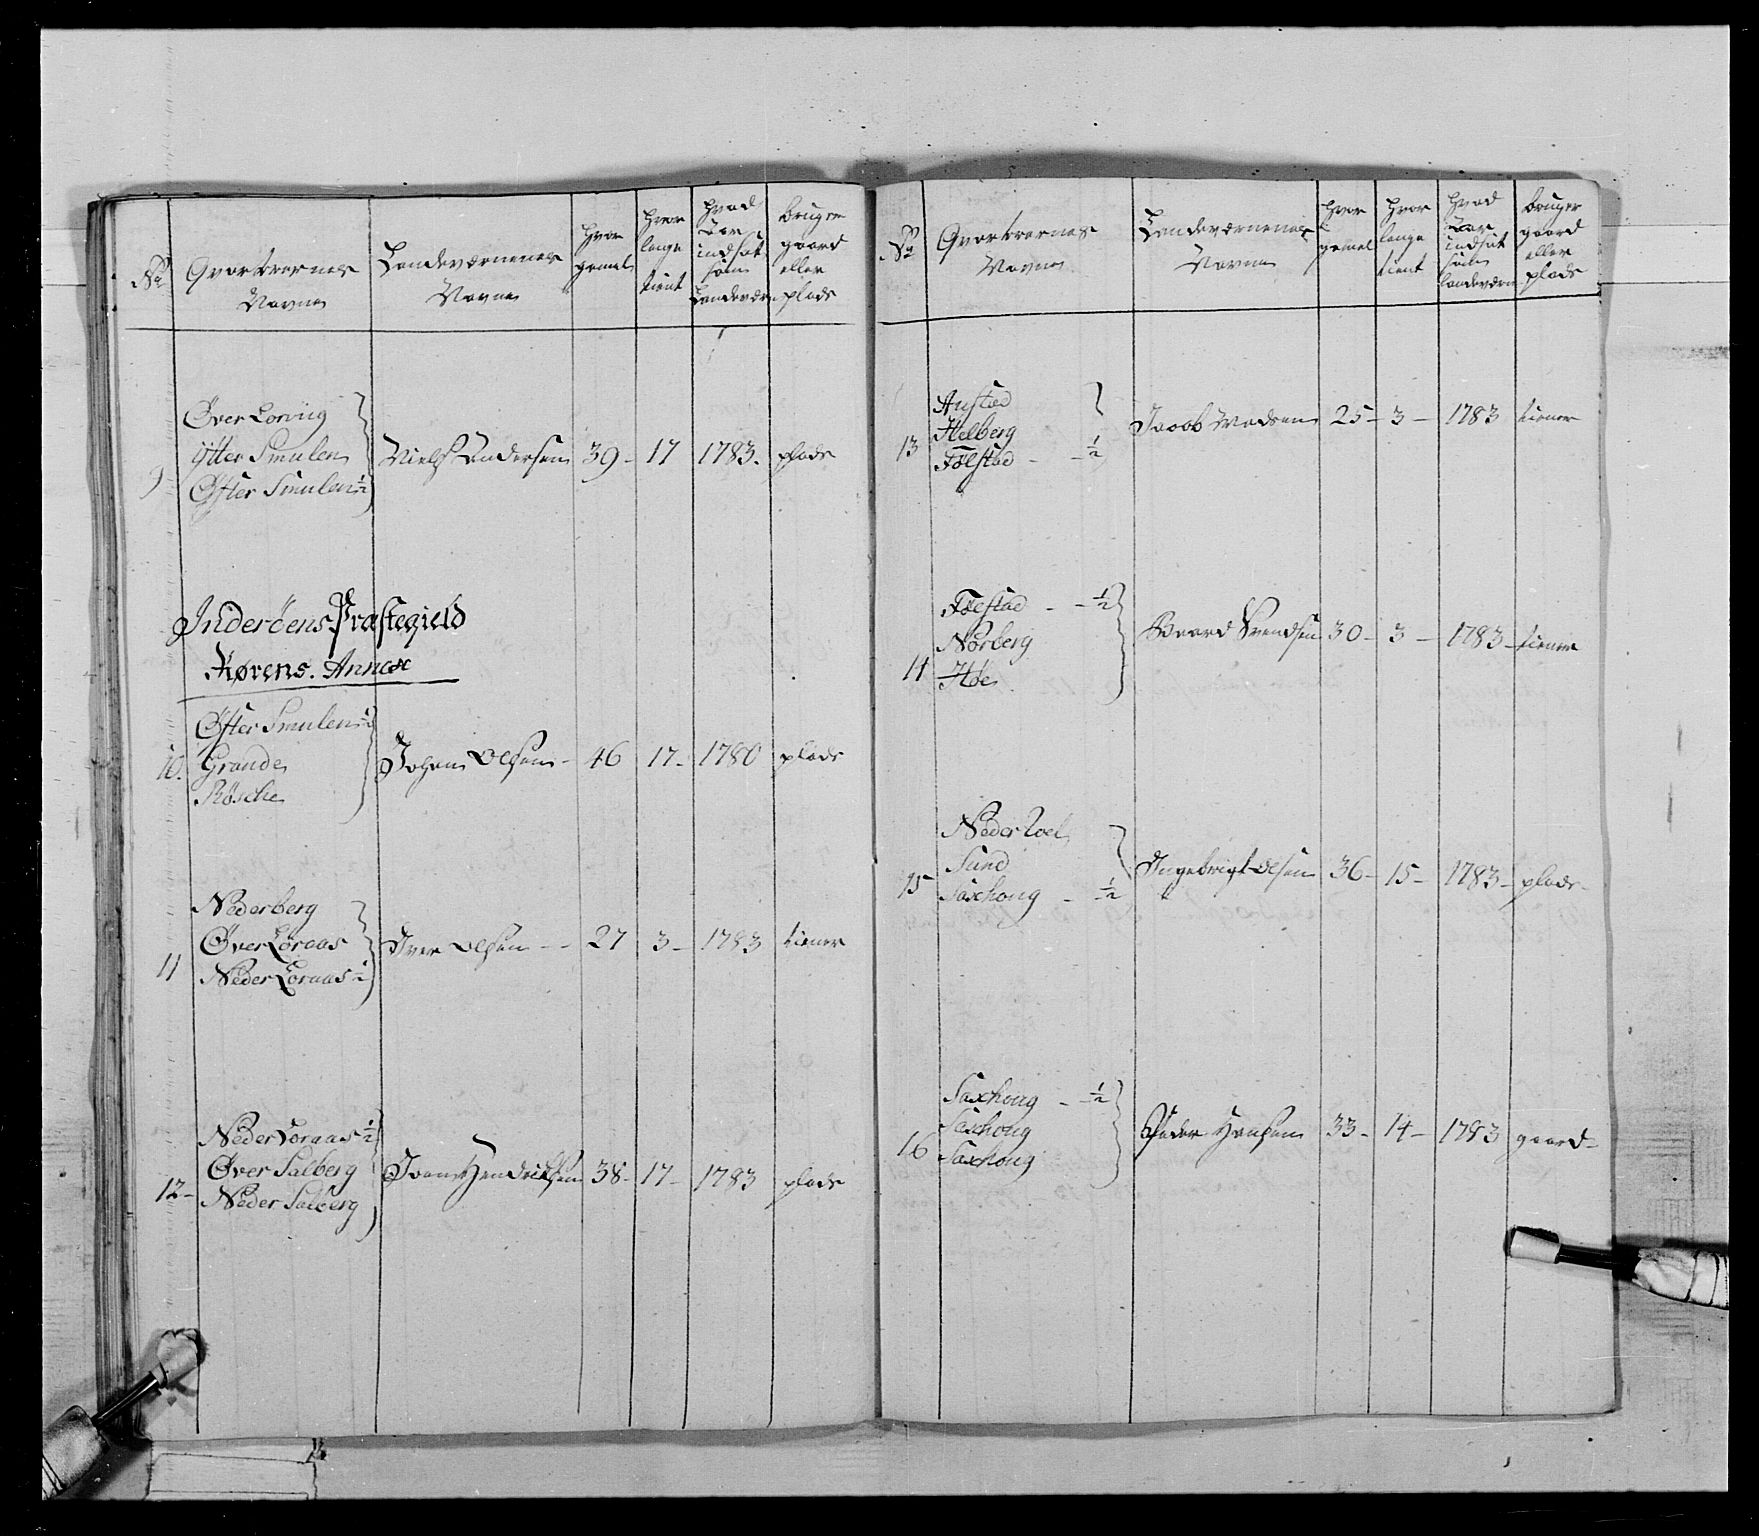 No
Qvarterernes
Navne
Landeværnenes
Navne
hvor
gamel
hvor
længe
tient
hvad
Aar
indsat
som
Landeværn
bruger
gaard
eller
plads
9
Øver Lorvig
Ytter Smulen
Øfter Smulen ½
Niels Andersen 39 - 17 1783. plads
Inderöens Præstegield
Rørens. Annex
10.
Øfter Smulen ½
Grande
Røsche
Johan Olsen - 46 17 - 1780 plads
11
Nederberg
Øver Loraas
Neder Loraas ½
Iver Olsen - - 27 3 - 1783 tiener
12 -
Neder Loraas ½
Øver Salberg
Neder Salberg
Hendrichsen 38 - 17 - 1783 plads
No
Qvarterernes
Navne
Landeværnenes
Navne
hvor
gamel
hvor
længe
tient
hvad
Aar
indsat
som
landeværn
bruger
gaard
eller
plads
13
Austad
Helberg
Følstad - - ½
Jacob Madsen 25 - 3 - 1783 tiener
14
Følstad - - ½
Norberg
Høe
Baard Svendsen 30 - 3 - 1783 - tiener
15
Neder
Sund
Saxhoug - ½
Ingebrigt Olsen 36 - 15 - 1783 - plads -
16
Saxhoug - ½
Saxhoug
Saxhoug
Peder Hansen 33 - 14 - 1783 gaard -